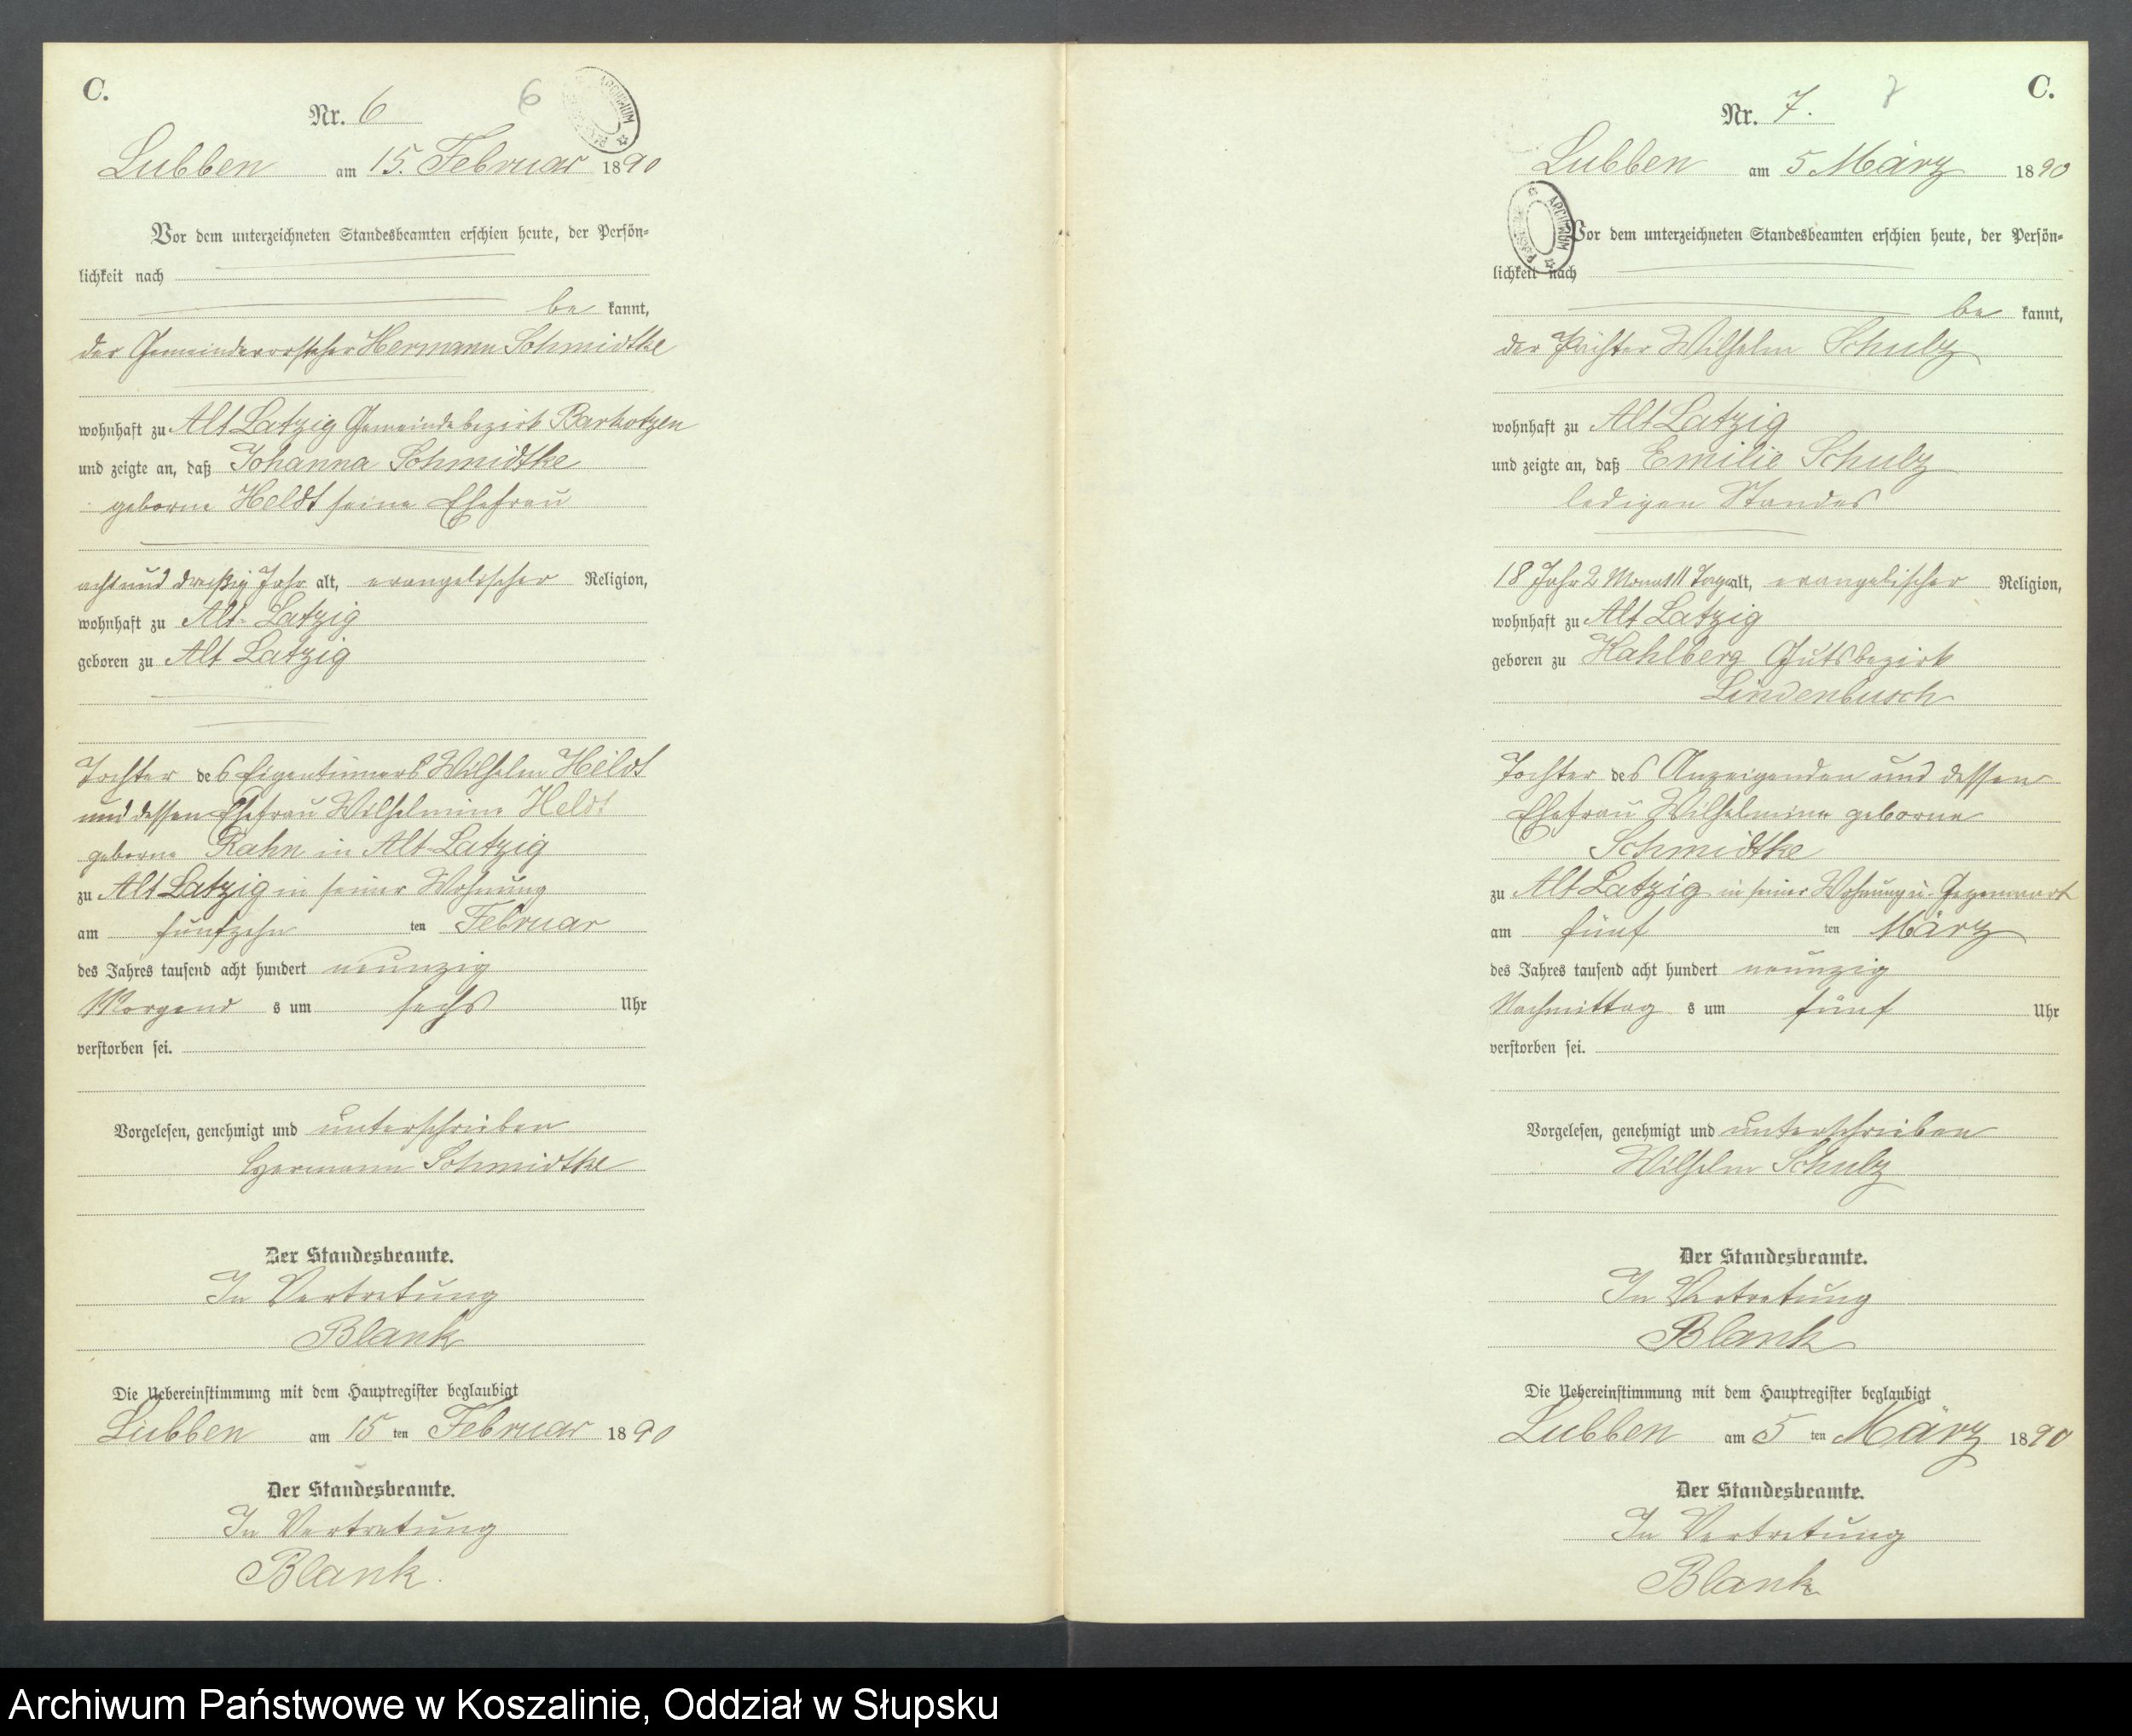 C.
Nr. 6
6
Lubben am 15. Februar 1890
Vor dem unterzeichneten Standesbeamten erschien heute, der Persön-
lichkeit nach
be kannt,
der Gemeindevorsteher Hermann Schmidtke
wohnhaft zu Alt Latzig Gemeindebezirk Barkotzen
und zeigte an, daß Johanna Schmidtke
geborne Heldt seine Ehefrau
acht und dreißig Jahr alt, evangelischer Religion,
wohnhaft zu Alt-Latzig
geboren zu Alt Latzig
Tochter des Eigentümers Wilhelm Heldt
und dessen Ehefrau Wilhelmine Heldt
geborne Rahn in Alt-Latzig
zu Alt Latzig in seiner Wohnung
am fünfzehn ten Februar
des Jahres tausend acht hundert neunzig
Morgend s um sechs Uhr
verstorben sei.
Vorgelesen, genehmigt und unterschrieben
Hermann Schmidtke
Der Standesbeamte.
In Vertretung
Blank
Die Uebereinstimmung mit dem Hauptregister beglaubigt
Lubben am 15 ten Februar 1890
Der Standesbeamte.
In Vertretung
Blank.
C.
Nr. 7.
7
Lubben am 5 März 1890
Vor dem unterzeichneten Standesbeamten erschien heute, der Persön-
lichkeit nach
be kannt,
der Pächter Wilhelm Schulz
wohnhaft zu Alt Latzig
und zeigte an, daß Emilie Schulz
ledigen Standes
18 Jahr 2 Monat 11 Tage alt, evangelischer Religion,
wohnhaft zu Alt Latzig
geboren zu Kahlberg Gutsbezirk
Lindenbusch
Tochter des Anzeigenden und dessen
Ehefrau Wilhelmine geborne
Schmidtke
zu Alt Latzig in seiner Wohnung u. Gegenwart
am fünf ten März
des Jahres tausend acht hundert neunzig
Nachmittag s um fünf Uhr
verstorben sei.
Vorgelesen, genehmigt und unterschrieben
Wilhelm Schulz
Der Standesbeamte.
In Vertretung
Blank
Die Uebereinstimmung mit dem Hauptregister beglaubigt
Lubben am 5 ten März 1890
Der Standesbeamte.
In Vertretung
Blank
Archiwum Państwowe w Koszalinie, Oddział w Słupsku